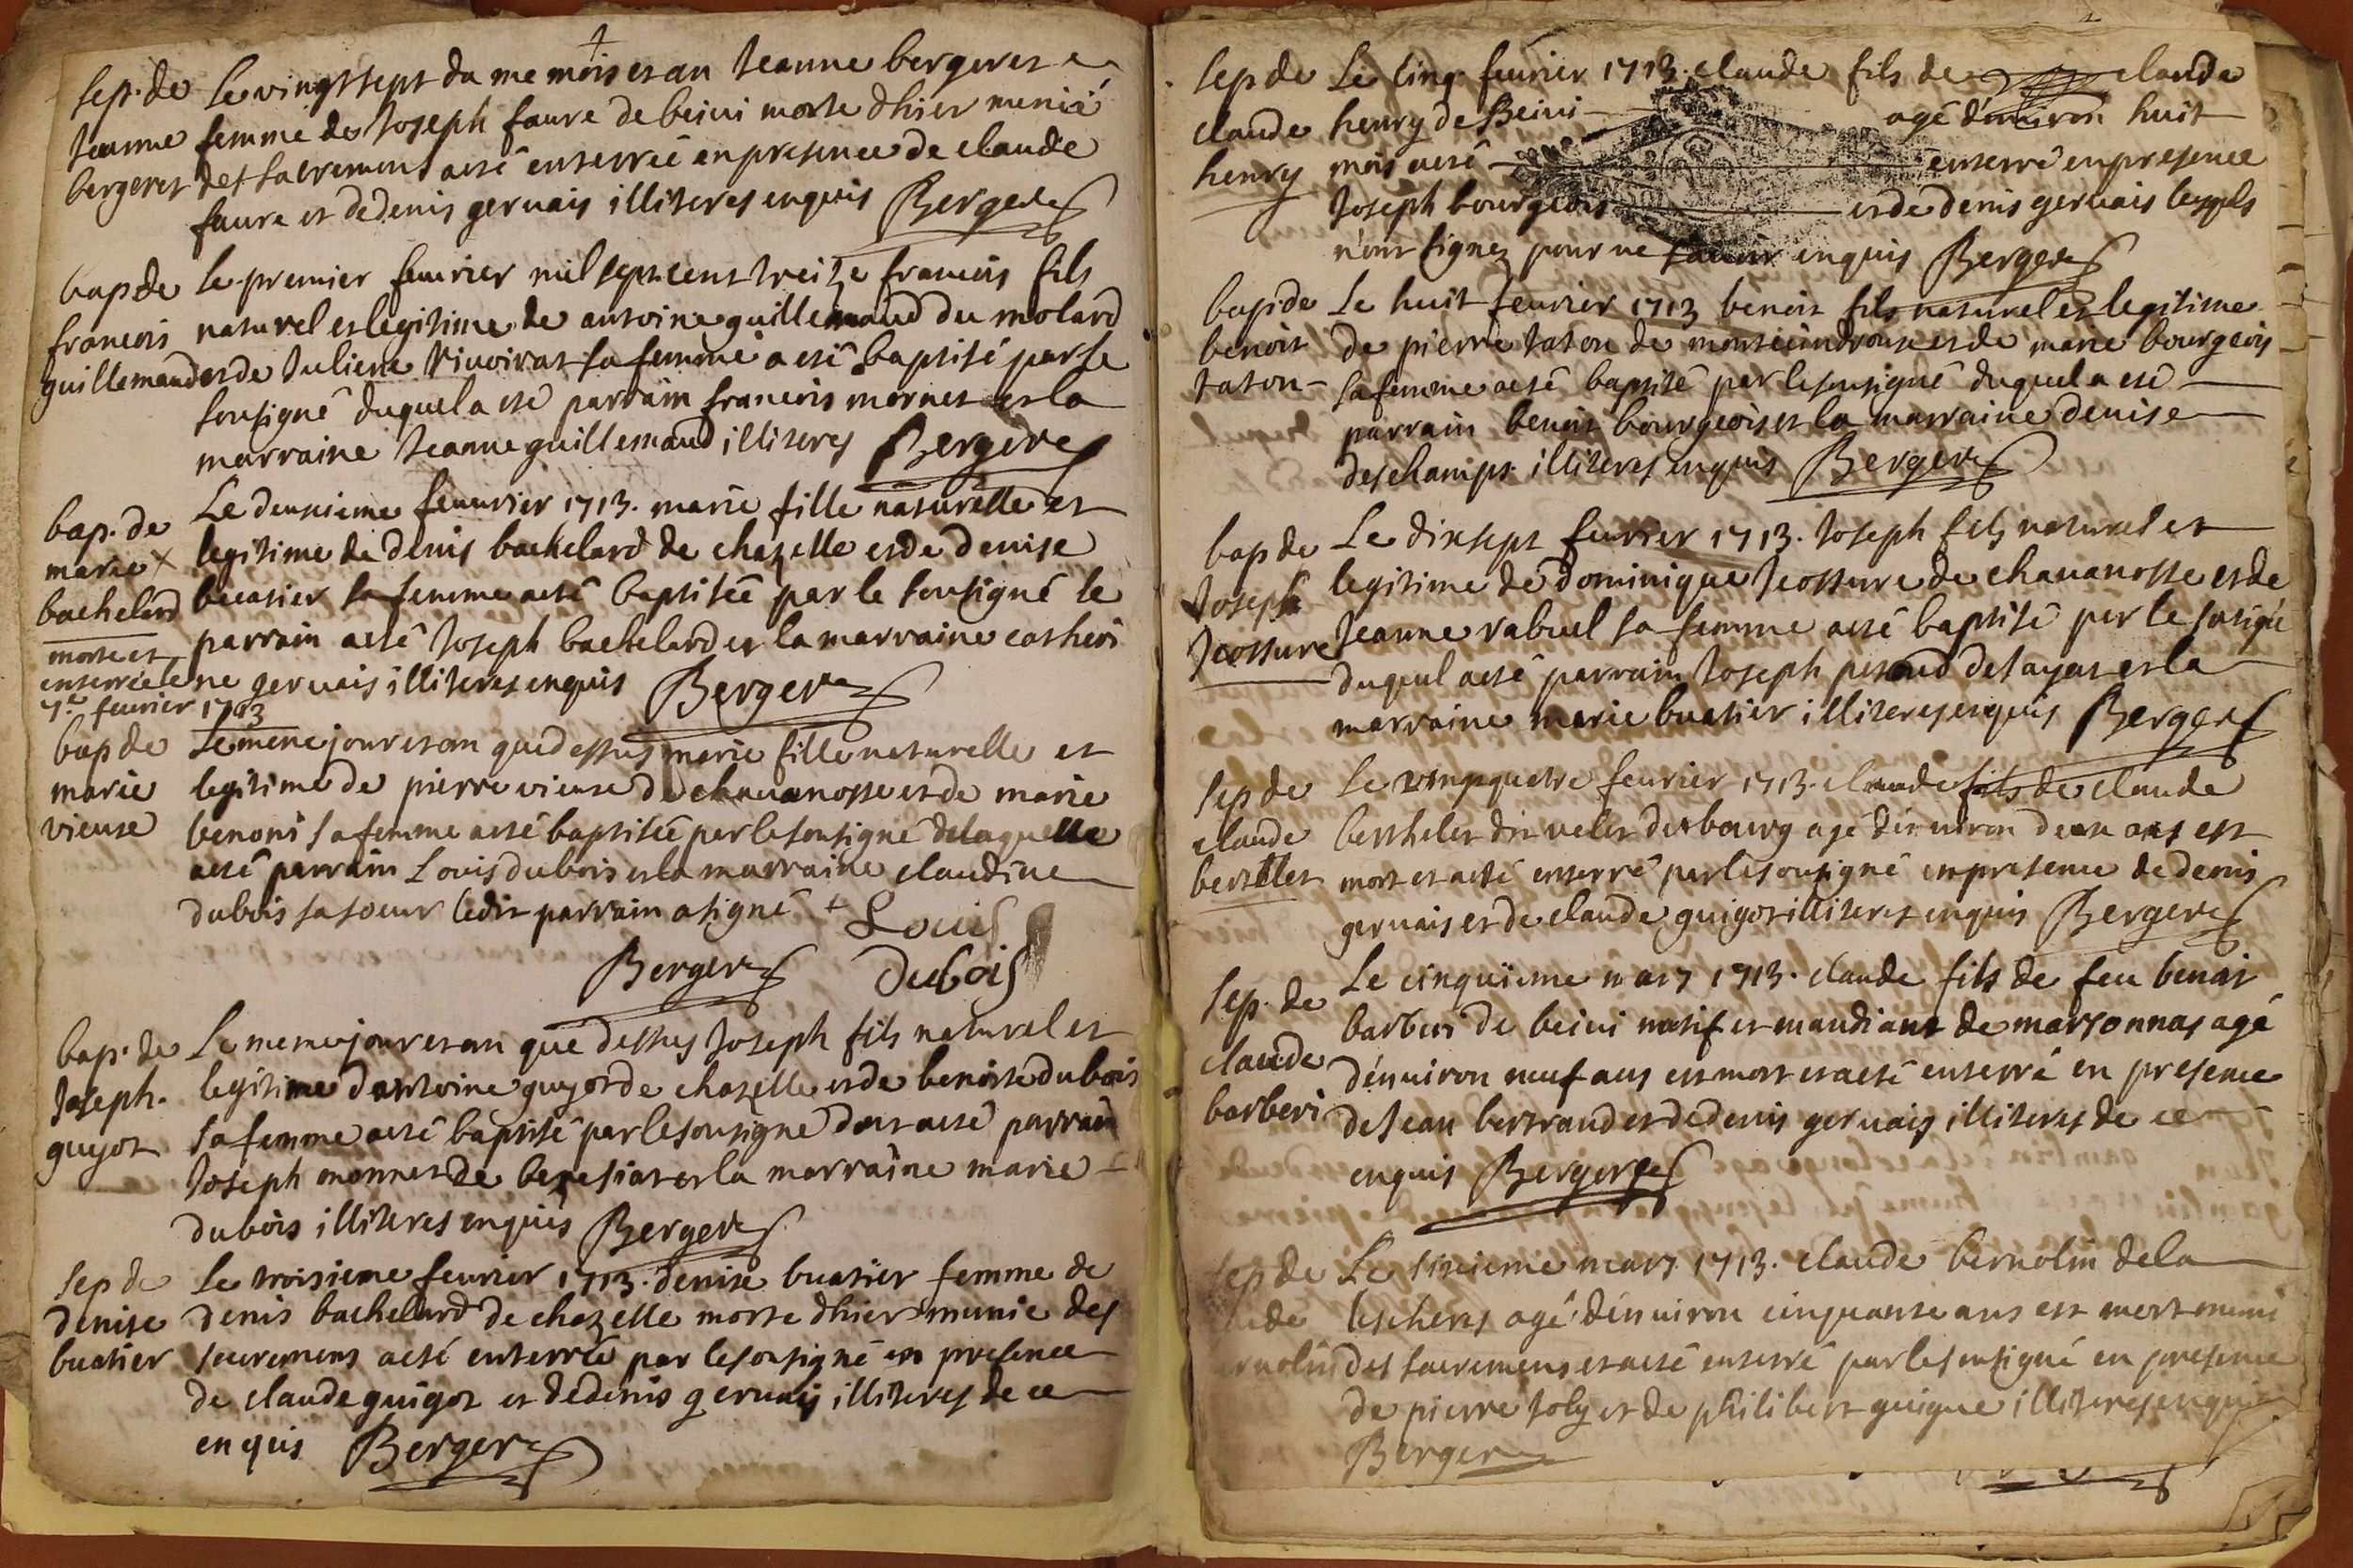 Sep. de
Jeanne
bergeret
Le vingt sept du me mois et an Jeanne bergeret
femme de Joseph faure de beini morte dhier munie
des sacremens a esté enterrée en presence de claude
faure et de denis gervais illiteres enquis Bergere
bap de
francois
guillemaud
le premier feuvrier mil sept cent treize francois fils
naturel et legitime de antoine guillemaud du molard
et de Juliene Vivoirat sa femme a esté baptisé par le
sousigné duquel a esté parrain francois mornet et la
marraine Jeanne guillemaud illiteres Bergere
bap. de
marie x
bachelard
morte et
enterrée le
7e feurier 1713
Le deuxieme feuvrier 1713. marie fille naturelle et
legitime de denis bachelard de chazelle et de denise
buatier sa femme a esté baptisée par le sousigné le
parrain a esté Joseph bachelard et la marraine catheri
ne gervais illiteres enquis Bergere
bap de
marie
vieuse
Le meme jour et an que dessus marie fille naturelle et
legitime de pierre vieuse de chavanosse et de marie
benoni sa femme a esté baptisée par le sousigné delaquelle
a esté parrain Louis dubois et la marraine claudine
dubois sa soeur ledit parrain a signé + Louis
Bergere dubois
bap. de
Joseph.
guyot
Le meme jour et an que dessus Joseph fils naturel et
legitime dantoine guyot de chazelle et de benoite dubois
sa femme a esté baptisé par le sousigné dont a esté parrain
Joseph monnet de beresiat et la marraine marie
dubois illiteres enquis Bergere
Sep de
denise
buatier
Le troisieme feurier 1713. denise buatier femme de
denis bachelard de chazelle morte dhier munie des
sacremens a esté enterrée par le sousigné en presence
de claude guigot et de denis gervais illiteres de ce
enquis Bergere
Sep de
claude
henry
Le cinq feuvrier 1713. claude fils de claude
henry de Beini agé denviron huit
mois a esté enterré en presence
Joseph bourgeois et de denis gervais lesqls
n'ont signez pour ne savoir enquis Bergere
bap de
benoit
taton
Le huit feuvrier 1713 benoit fils naturel et legitime
de pierre taton de et de marie bourgeois
sa femme a esté baptisé par le sousigné duquel a esté
parrain benoit bourgeois et la marraine denise
deschamps illiteres enquis Bergere
bap de
Joseph
Jcossure
Le dixsept feuvrier 1713. Joseph fils naturel et
legitime de dominique Jcossure de chavanosse et de
Jeanne rabuel sa femme a esté baptisé par le sousigné
duquel a esté parrain Joseph perraud de et la
marraine marie buatier illiteres enquis Bergere
Sep de
claude
berthelet
Le vingt quatre feurier 1713. claude fils de claude
berthelet dit velet du bourg agé denviron deux ans est
mort et a esté enterré par le sousigné en presence de denis
gervais et de claude guigot illiteres enquis Bergere
Sep. de
claude
barberi
Le cinquieme mars 1713. claude fils de feu benoit
barberi de beini natif et mandiant de marsonnas agé
denviron neuf ans est mort et a esté enterré en presence
de Jean bertrand et de denis gervais illiteres de ce
enquis Bergere
Sep de
Le sixieme mars 1713. claude bernolin de la
lescheres agé denviron cinquante ans est mort muni
des sacremens et a esté enterré par le sousigné en presence
de pierre Joly et de philibert guigue illiteres enquis
Bergere